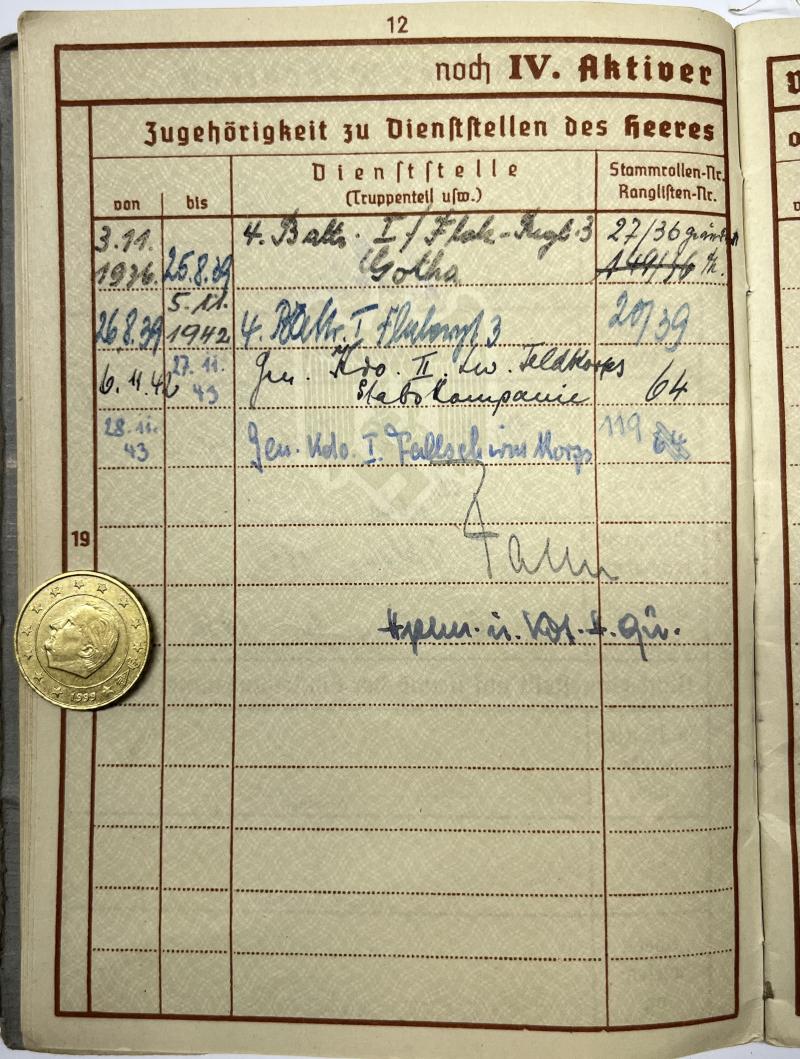 12
noch IV. Aktiver
Zugehörigkeit zu Dienststellen des Heeres
von
bis
Dienststelle
(Truppenteil usw.)
Stammrollen-Nr.
Ranglisten-Nr.
3.11.
1936.
25.8.39
4. Battr. I / Flak-Rgt. 3
Gotha
27/36
149/36
26.8.39
5.11.
1942
4. Battr. I Flakrgt 3
20/39
6.11.42
27.11.
43
Gen. Kdo. II. Lw. Feldkorps
Stabskompanie
64
28.11.
43
Gen. Kdo. I. Fallschirm Korps
119
64
19
Hptm. u. Kdt. H. Qu.
1999